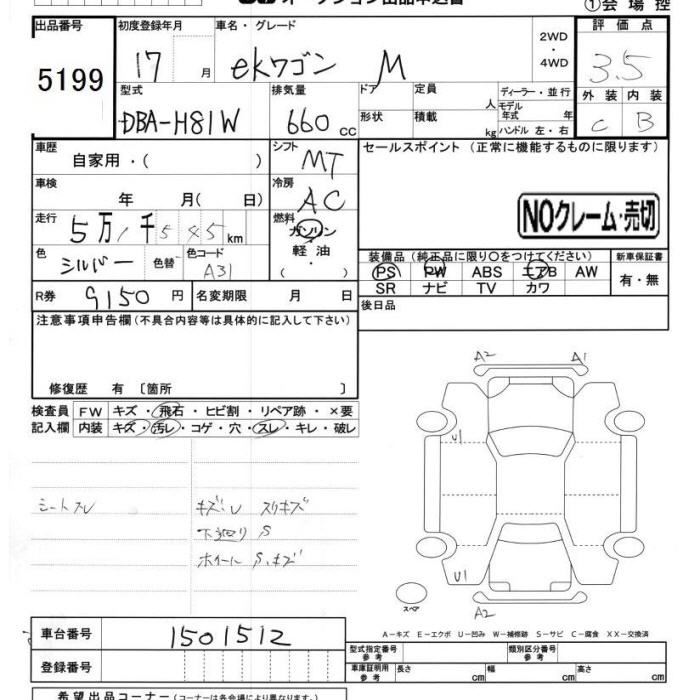 ①会場控
出品番号 初度登録年月 車名・グレード 評価点
5199 17 月 ekワゴン M 2WD ・ 4WD 3.5
外装 内装
C B
型式 排気量 ドア 定員 人 ディーラー・並行
DBA-H81W 660 cc 形状 積載 kg モデル年式 年
ハンドル 左・右
車歴 シフト セールスポイント (正常に機能するものに限ります)
自家用・( ) MT
車検 冷房
年 月( 日) AC
NOクレーム・売切
走行 燃料
5万1千545km ガソリン
軽油
・
( )
色 色替 色コード
シルバー A31
装備品 (純正品に限り○をつけてください) 新車保証書
PS PW ABS エアB AW 有・無
SR ナビ TV カワ
R券 9150 円 名変期限 月 日
後日品
注意事項申告欄 (不具合内容等は具体的に記入して下さい)
修復歴 有 〔箇所 〕
検査員 FW キズ・飛石・ヒビ割・リペア跡・×要
記入欄 内装 キズ・汚レ・コゲ・穴・スレ・キレ・破レ
A2 A1
U1
シートスレ キズ.U スリキズ
下廻り S
ホイールS.キズ
U1
スペア
A2
A-キズ E-エクボ U-凹み W-補修跡 S-サビ C-腐食 XX-交換済
車台番号 1501512
型式指定番号 参考 類別区分番号 参考
登録番号
車庫証明用 参考 長さ cm 幅 cm 高さ cm
希望出品コーナー (コーナーは各会場により異なります。)